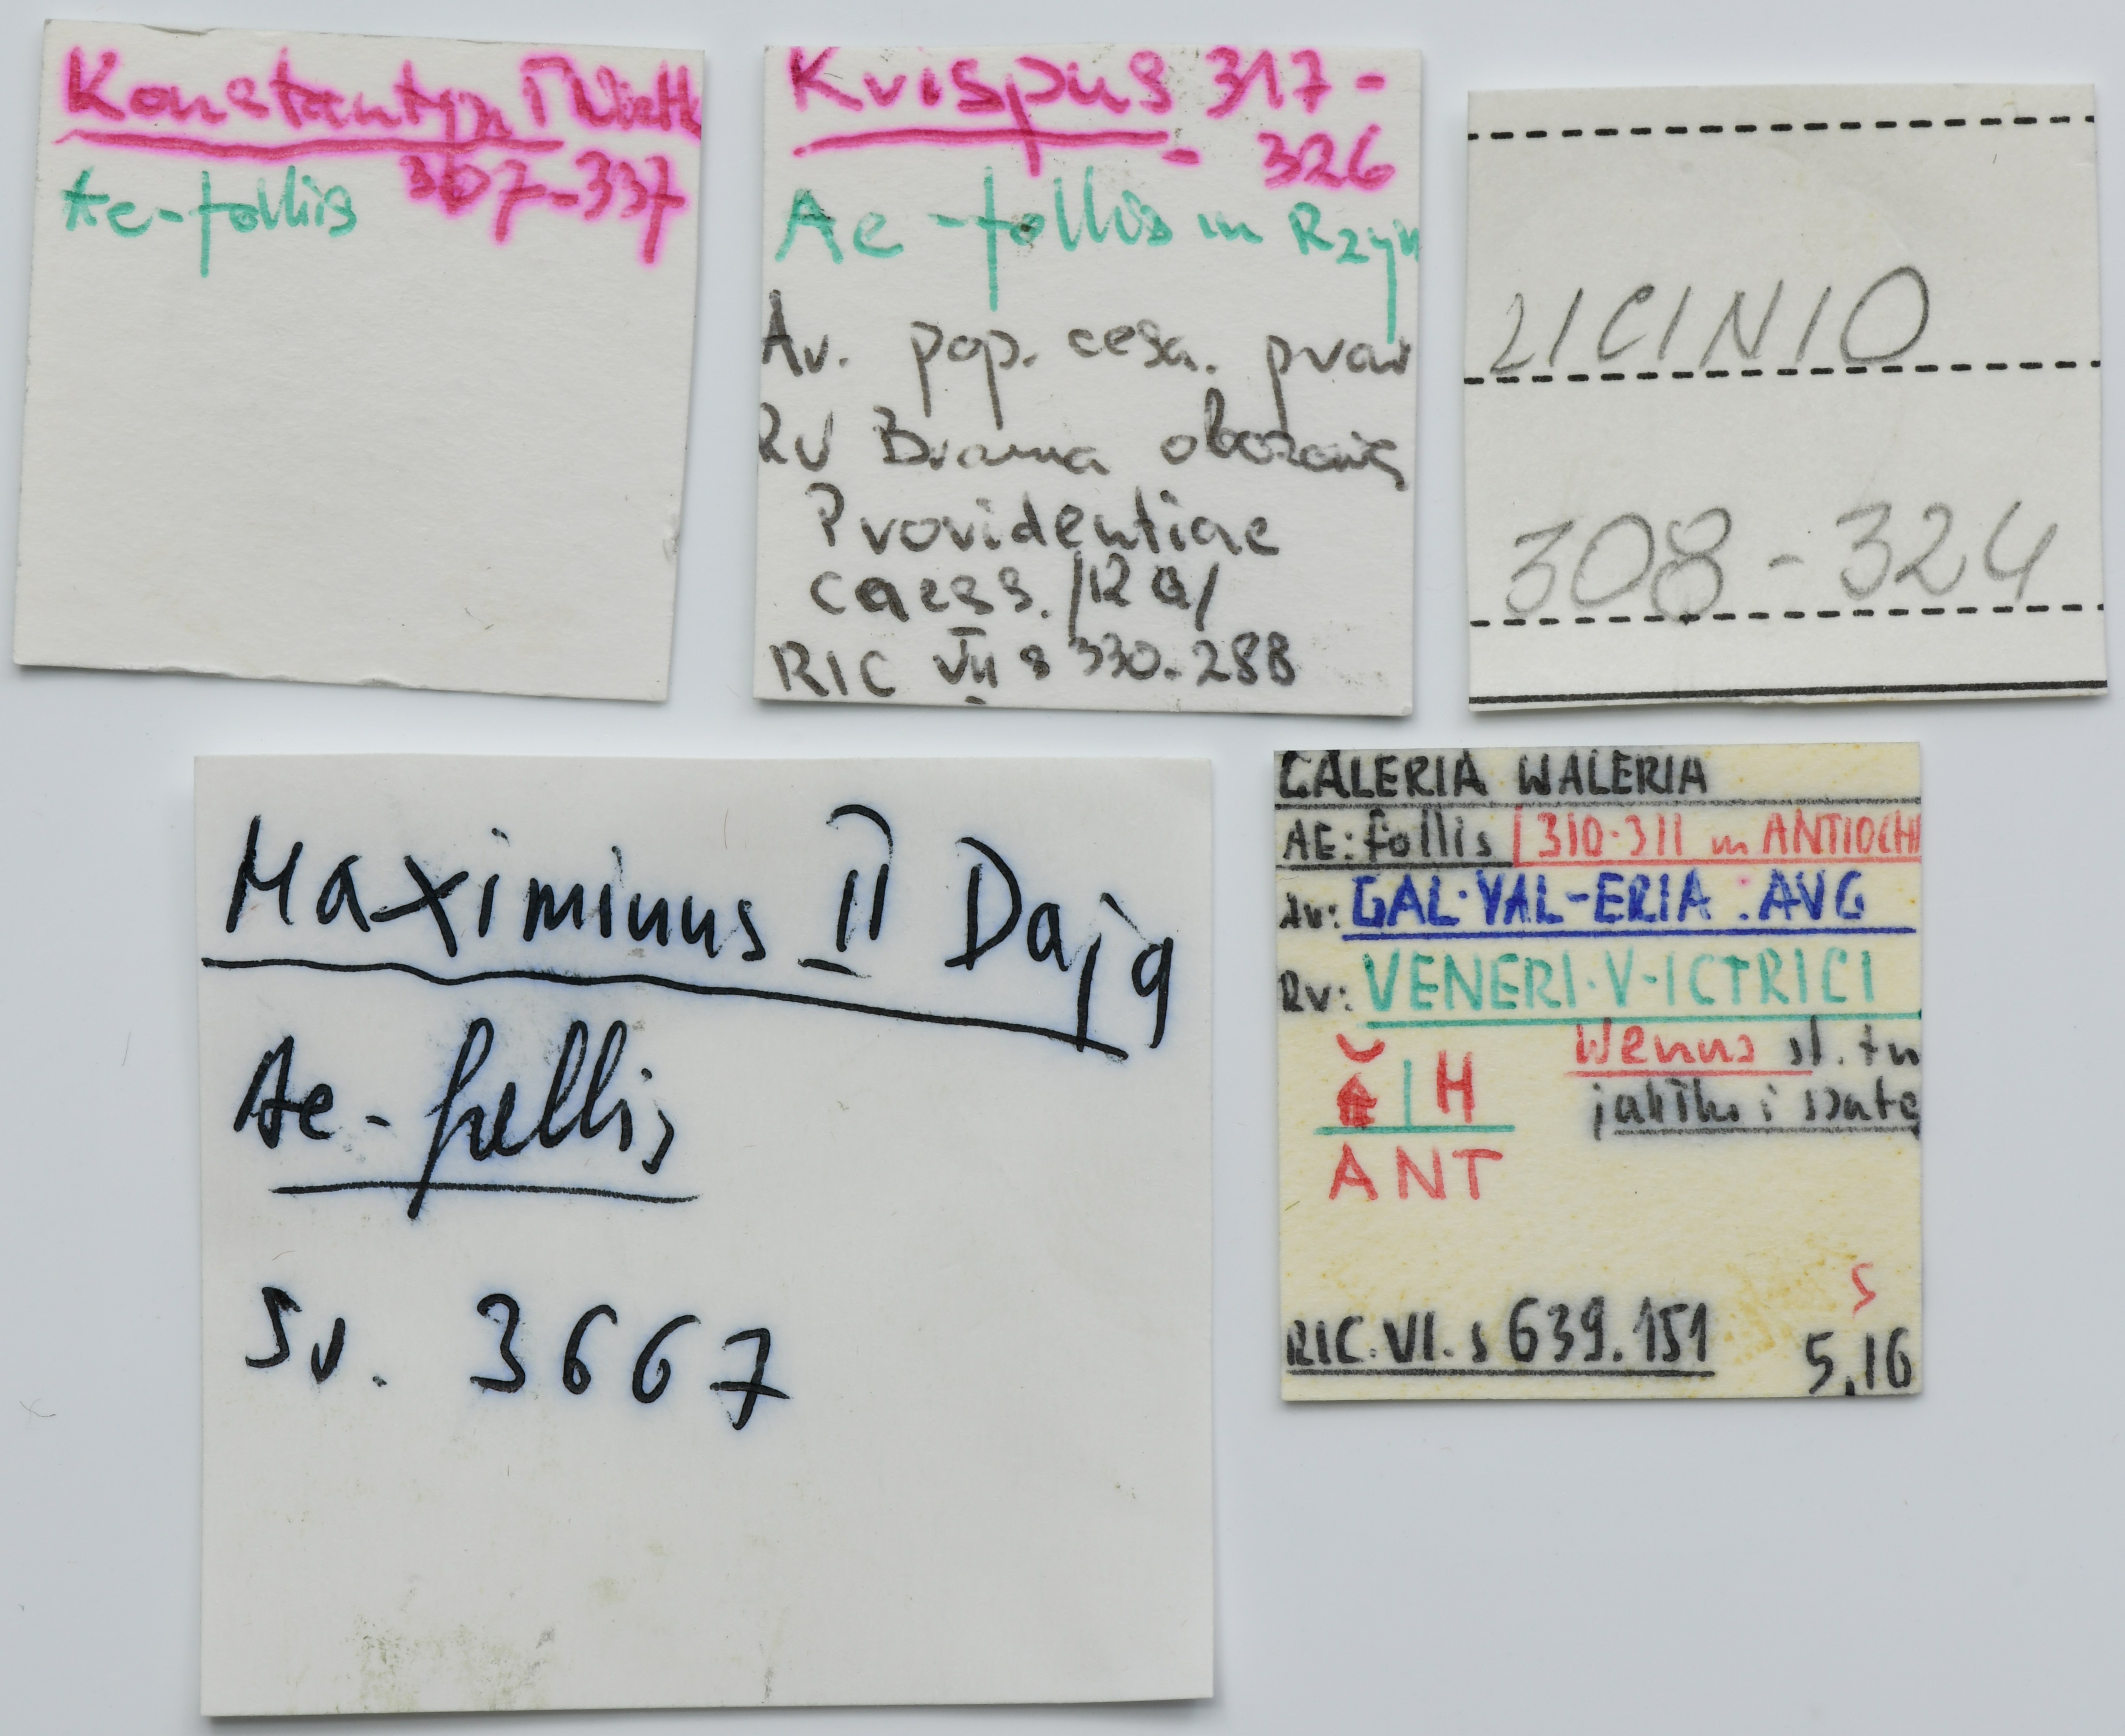 Konstantyn I Wielk
307-337
Ae-follis
Krispus 317-
- 326
Ae-follis m Rzym
Av. pop. cesa. praw
Rv Brama obozowa
Providentiae
caess. /RQ/
RIC VII s 330.288
LICINIO
308-324
Maximinus II Daja
Ae-follis
Sv. 3667
GALERIA WALERIA
AE: follis / 310-311 m ANTIOCHI
Av: GAL·VAL-ERIA·AVG
Rv: VENERI·V-ICTRICI
Wenus st. tn
H
jabłko i szatę
ANT
S
RIC.VI. s 639.151
5,16